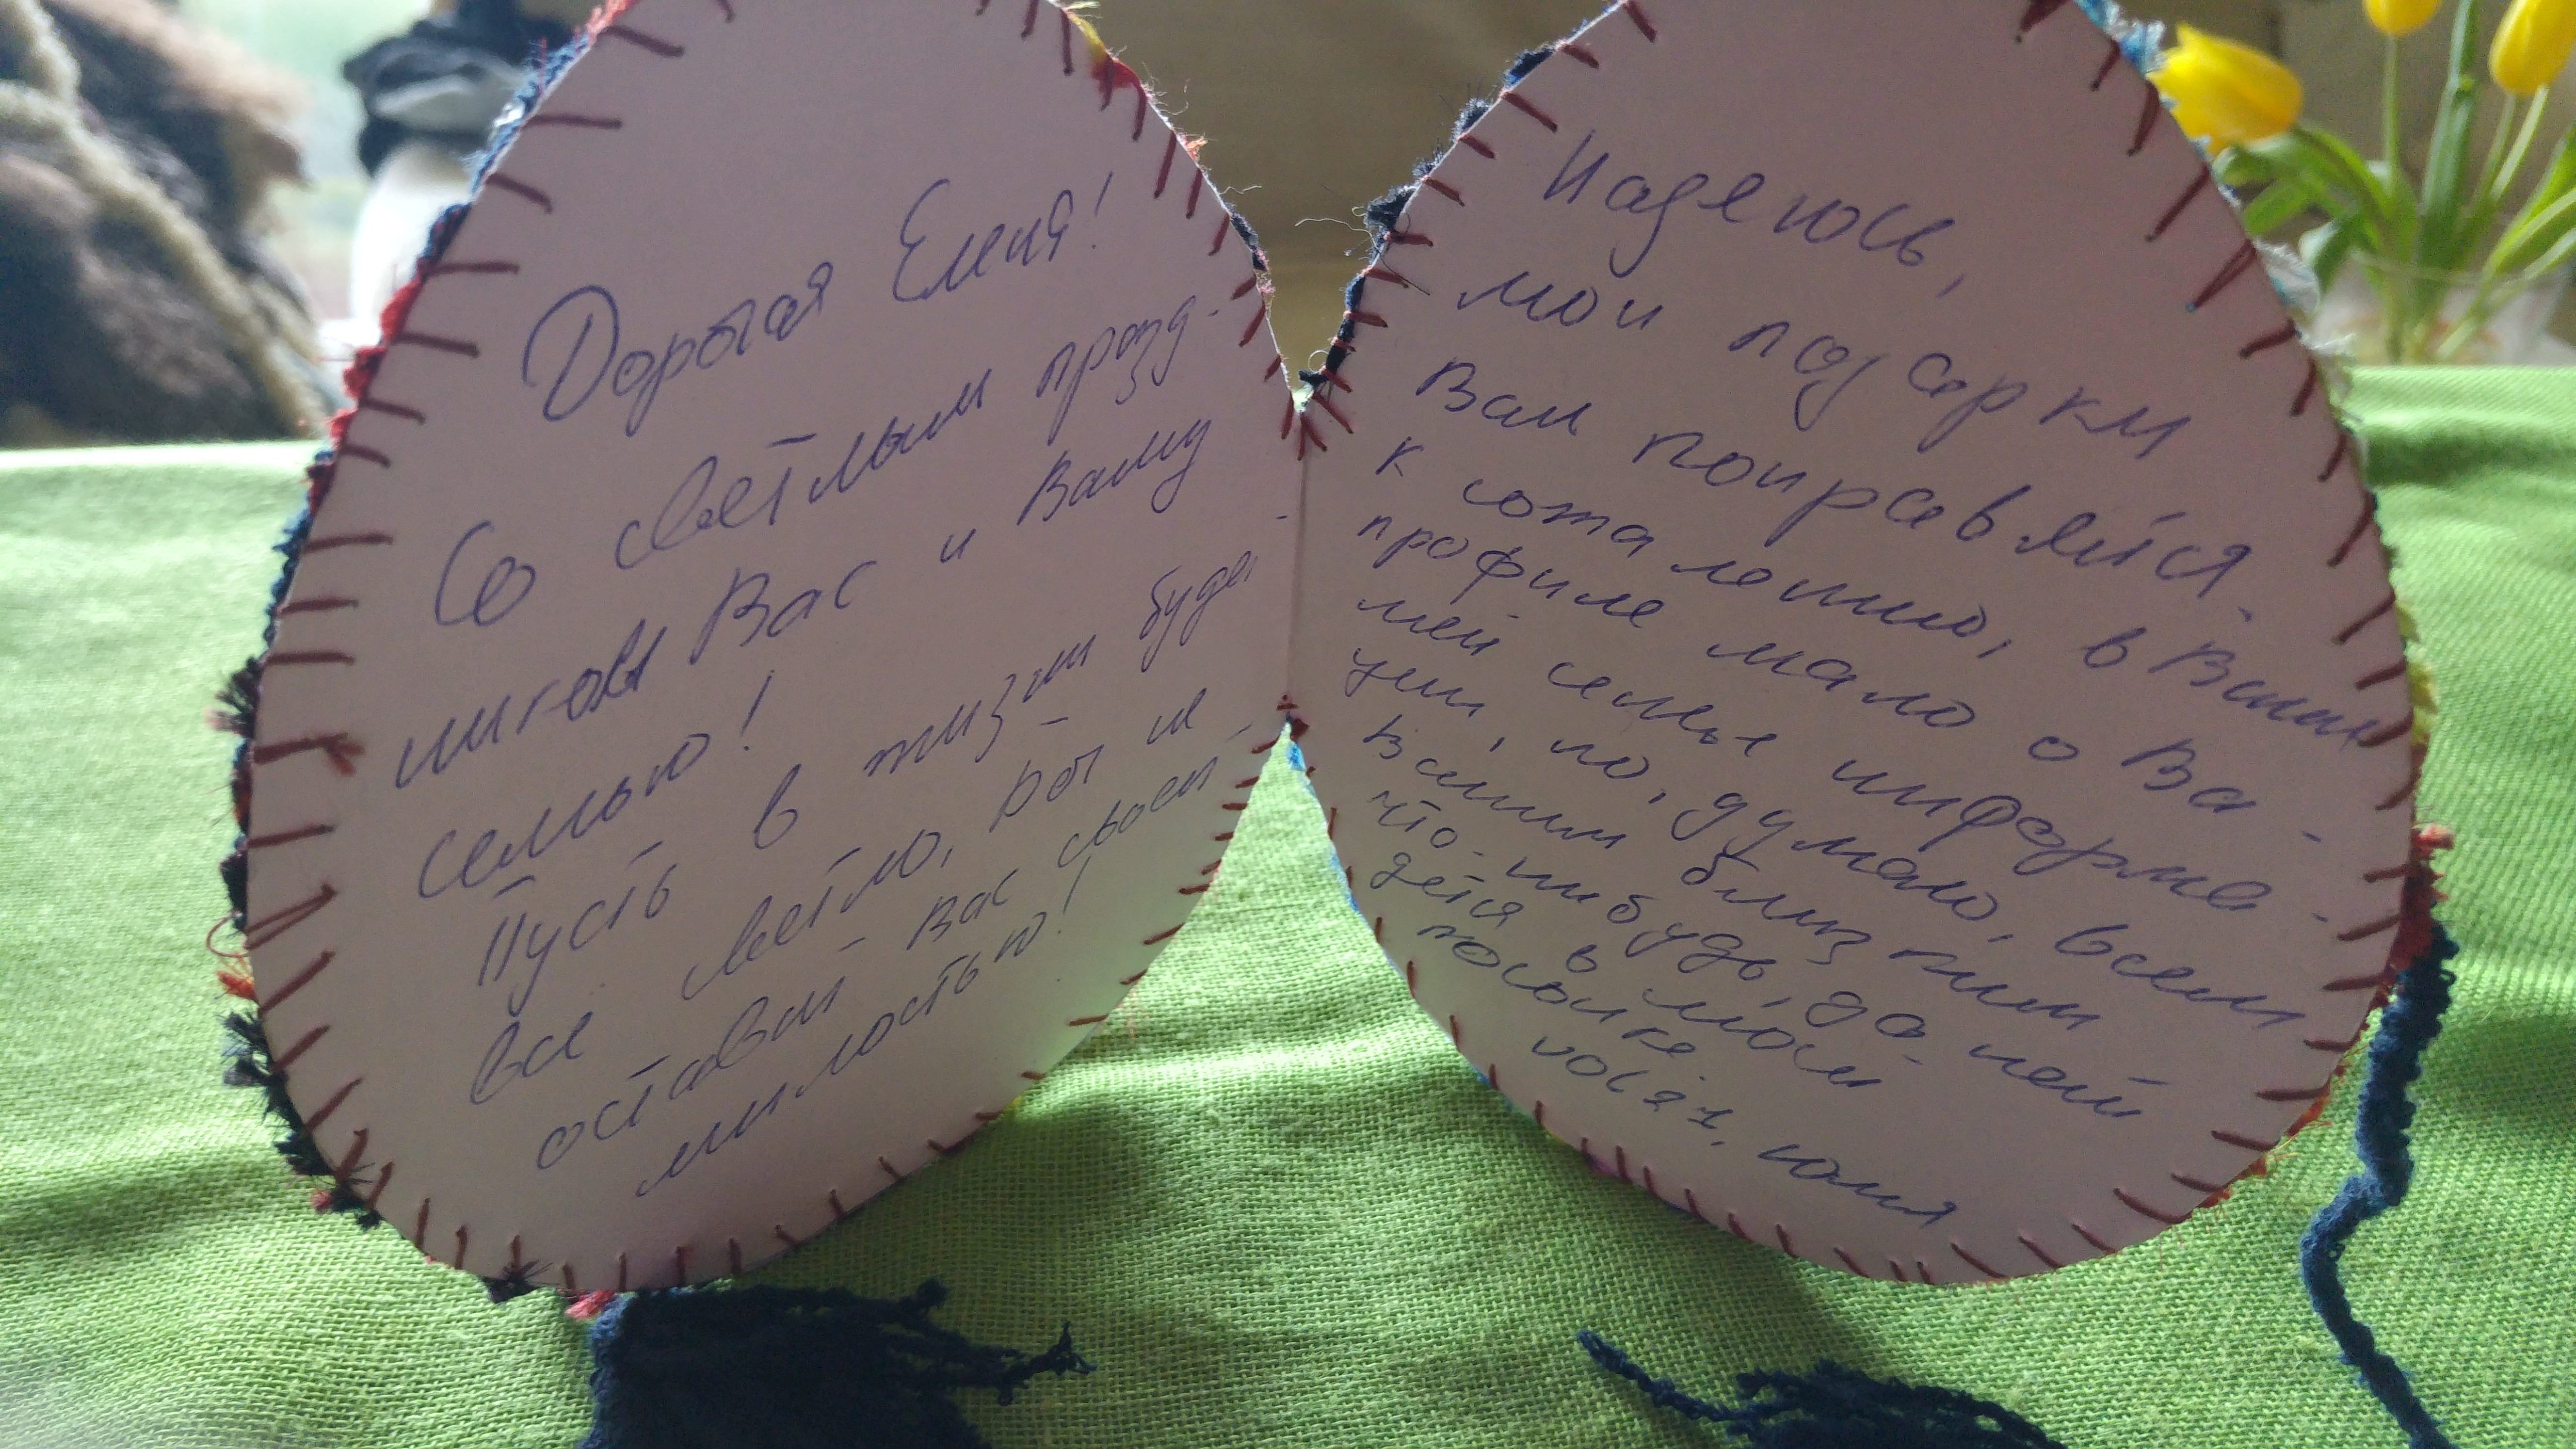 Дорогая Елена!
Со светлым празд-
ником Вас и Вашу
семью!
Пусть в жизни будет
все светло, Бог не
оставит Вас своей
милостью!
Надеюсь,
мои подарки
Вам понравятся.
К сожалению, в Вашем
профиле мало о Ва-
шей семье информа-
ции, но, думаю, всем
Вашим близким
что-нибудь, да най-
дётся в моей
посылке
vol27, Юлия